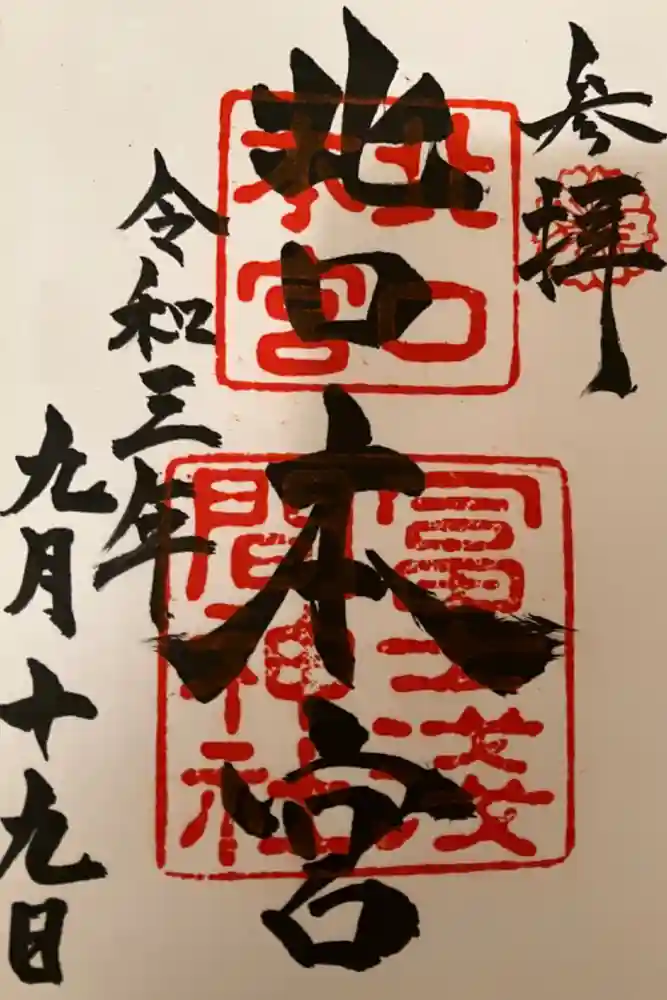 参拝
北口本宮
北口
本宮
冨士浅
間神社
令和三年
九月十九日